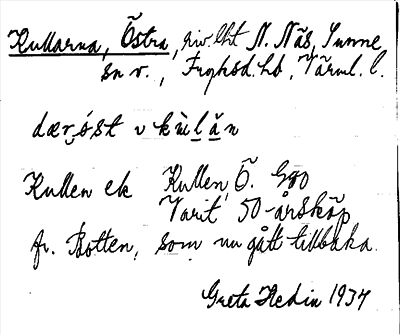 Kullarna, Östra, riv. lht N. Näs, Sunne
sn v., Fryksd. hd, Värml. l.
dær, óst v kùlăn
Kullen ek Kullen, Ö. G80
Varit 50-årsköp
fr. Botten, som nu gått tillbaka.
Greta Hedin 1937